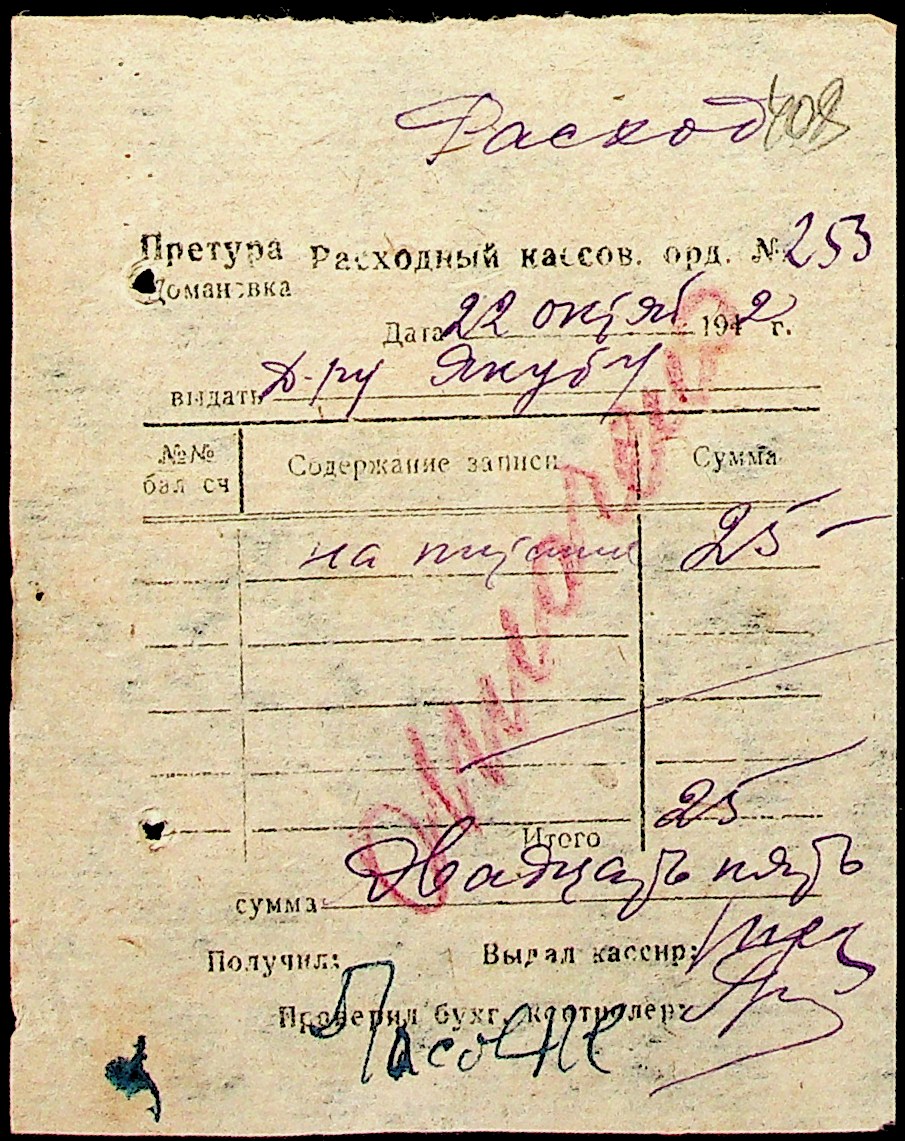 Расход 408
Претура Расходный кассов. орд. № 253
Домановка
Дата 22 октяб 1942 г.
выдать Д-ру Якубу
№№ Содержание записи Сумма
бал сч
на 25 -
25
Итого
сумма Двадцать пять
Получил: Выдал кассир:
Проверил бухг. контролер: